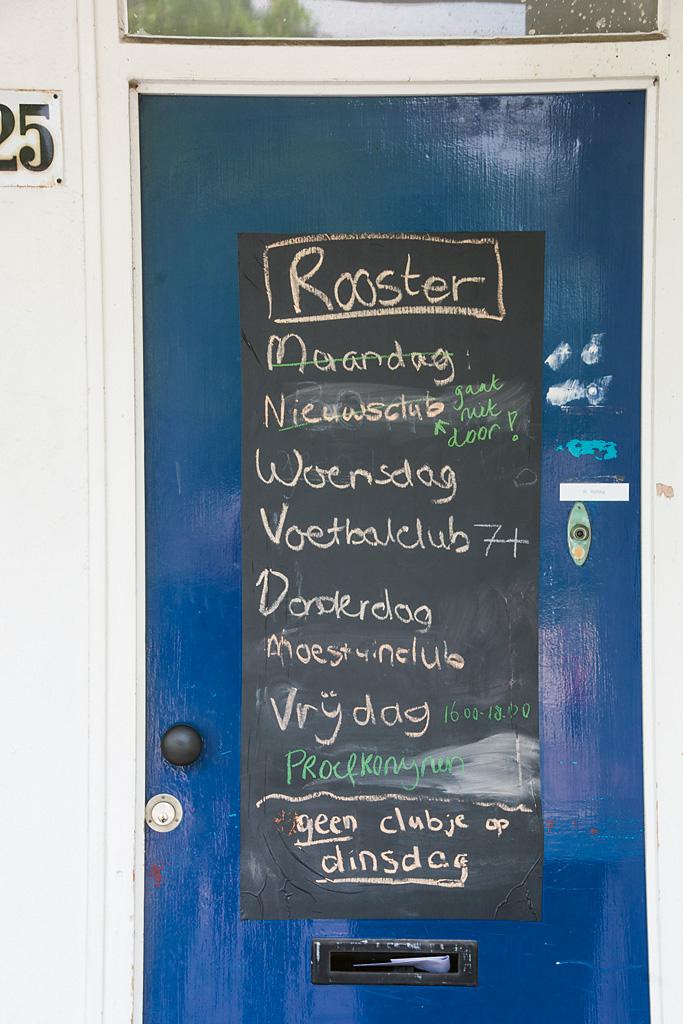 25
Rooster
Maandag:
Nieuwsclub
gaat
niet
door!
Woensdag
Voetbalclub 7+
Donderdag
Moestuinclub
Vrijdag 16.00-18.00
PROEFKONIJNEN
geen clubje op
dinsdag